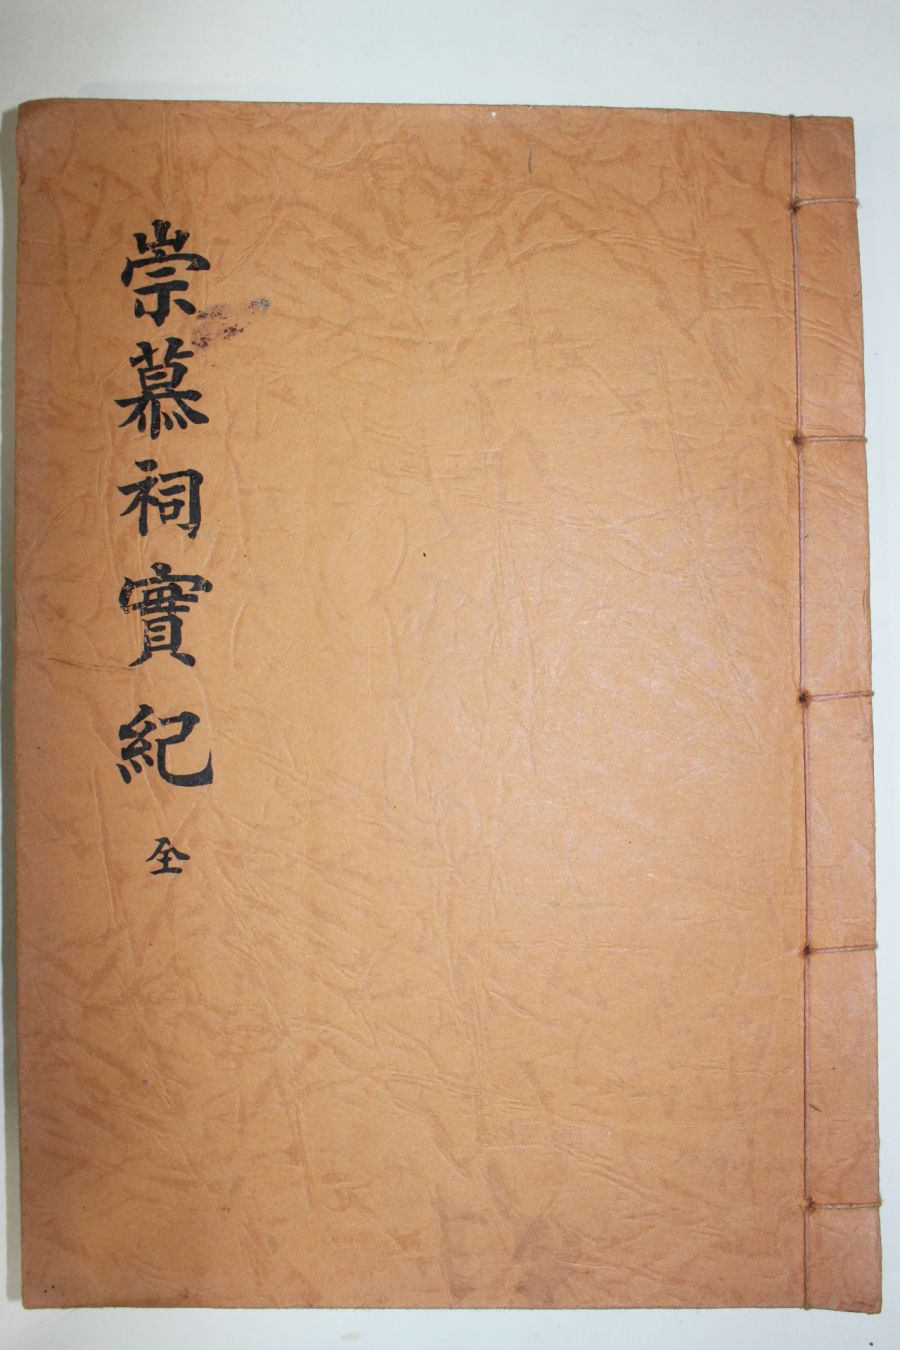 崇慕祠實紀 全